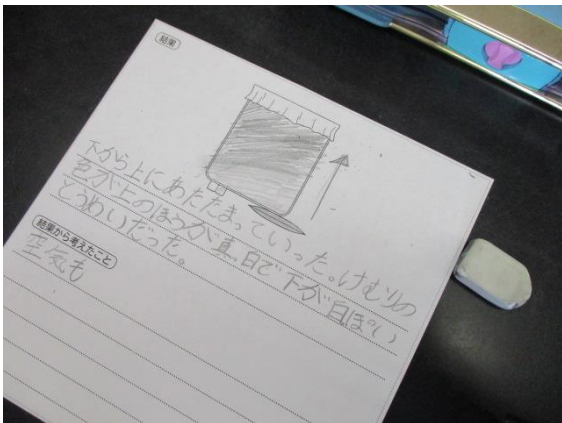 結果
下から上にあたたまっていった。けむりの
色が上のほうが真っ白で下が白ぽい
とうめいだった。
結果から考えたこと
空気も